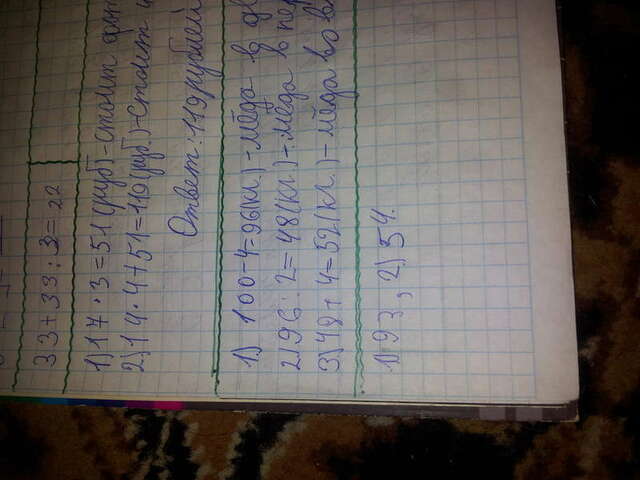 33+33:3=22
1) 17·3=51(руб)-стоит
2) 14·4+51=119(руб)-стоит
Ответ: 119 рублей
1) 100-4=96(кг.)-мёда в
2) 96:2=48(кг.)-мёда в
3) 48+4=52(кг.)-мёда во
1) 93, 2) 54.